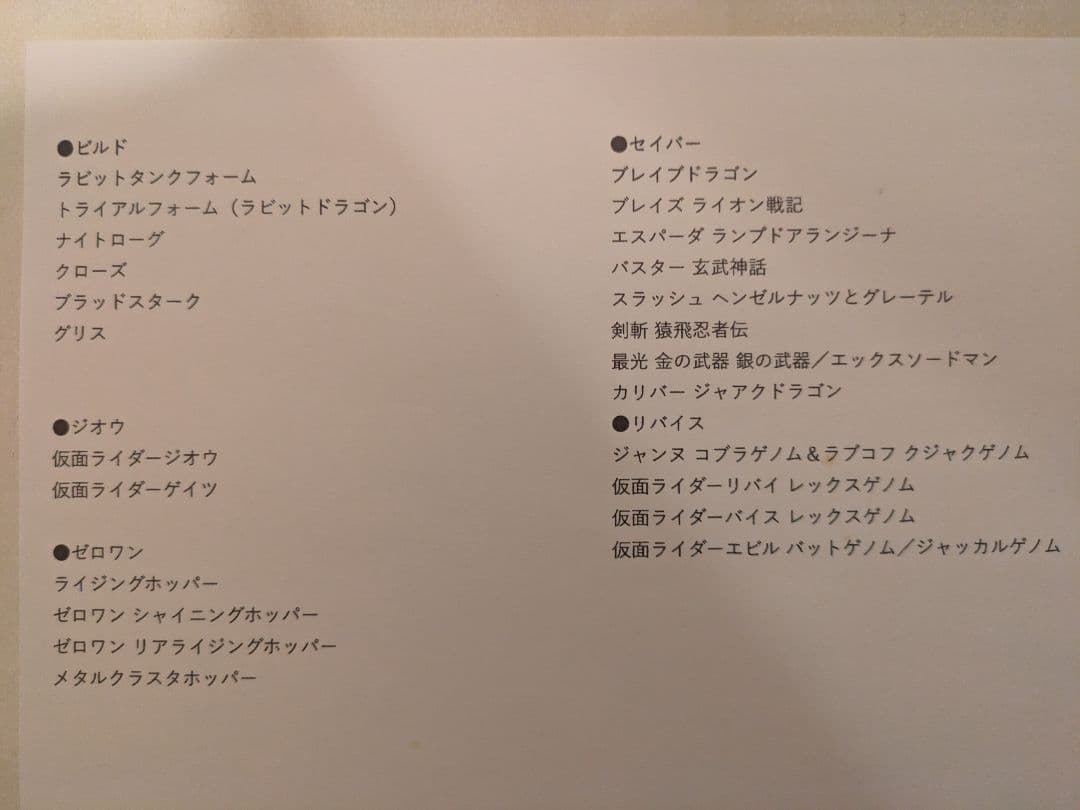 ●ビルド
ラビットタンクフォーム
トライアルフォーム（ラビットドラゴン）
ナイトローグ
クローズ
ブラッドスターク
グリス
●ジオウ
仮面ライダージオウ
仮面ライダーゲイツ
●ゼロワン
ライジングホッパー
ゼロワン シャイニングホッパー
ゼロワン リアライジングホッパー
メタルクラスタホッパー
●セイバー
ブレイブドラゴン
ブレイズ ライオン戦記
エスパーダ ランプドアランジーナ
バスター 玄武神話
スラッシュ ヘンゼルナッツとグレーテル
剣斬 猿飛忍者伝
最光 金の武器 銀の武器／エックスソードマン
カリバー ジャアクドラゴン
●リバイス
ジャンヌ コブラゲノム＆ラブコフ クジャクゲノム
仮面ライダーリバイ レックスゲノム
仮面ライダーバイス レックスゲノム
仮面ライダーエビル バットゲノム／ジャッカルゲノム